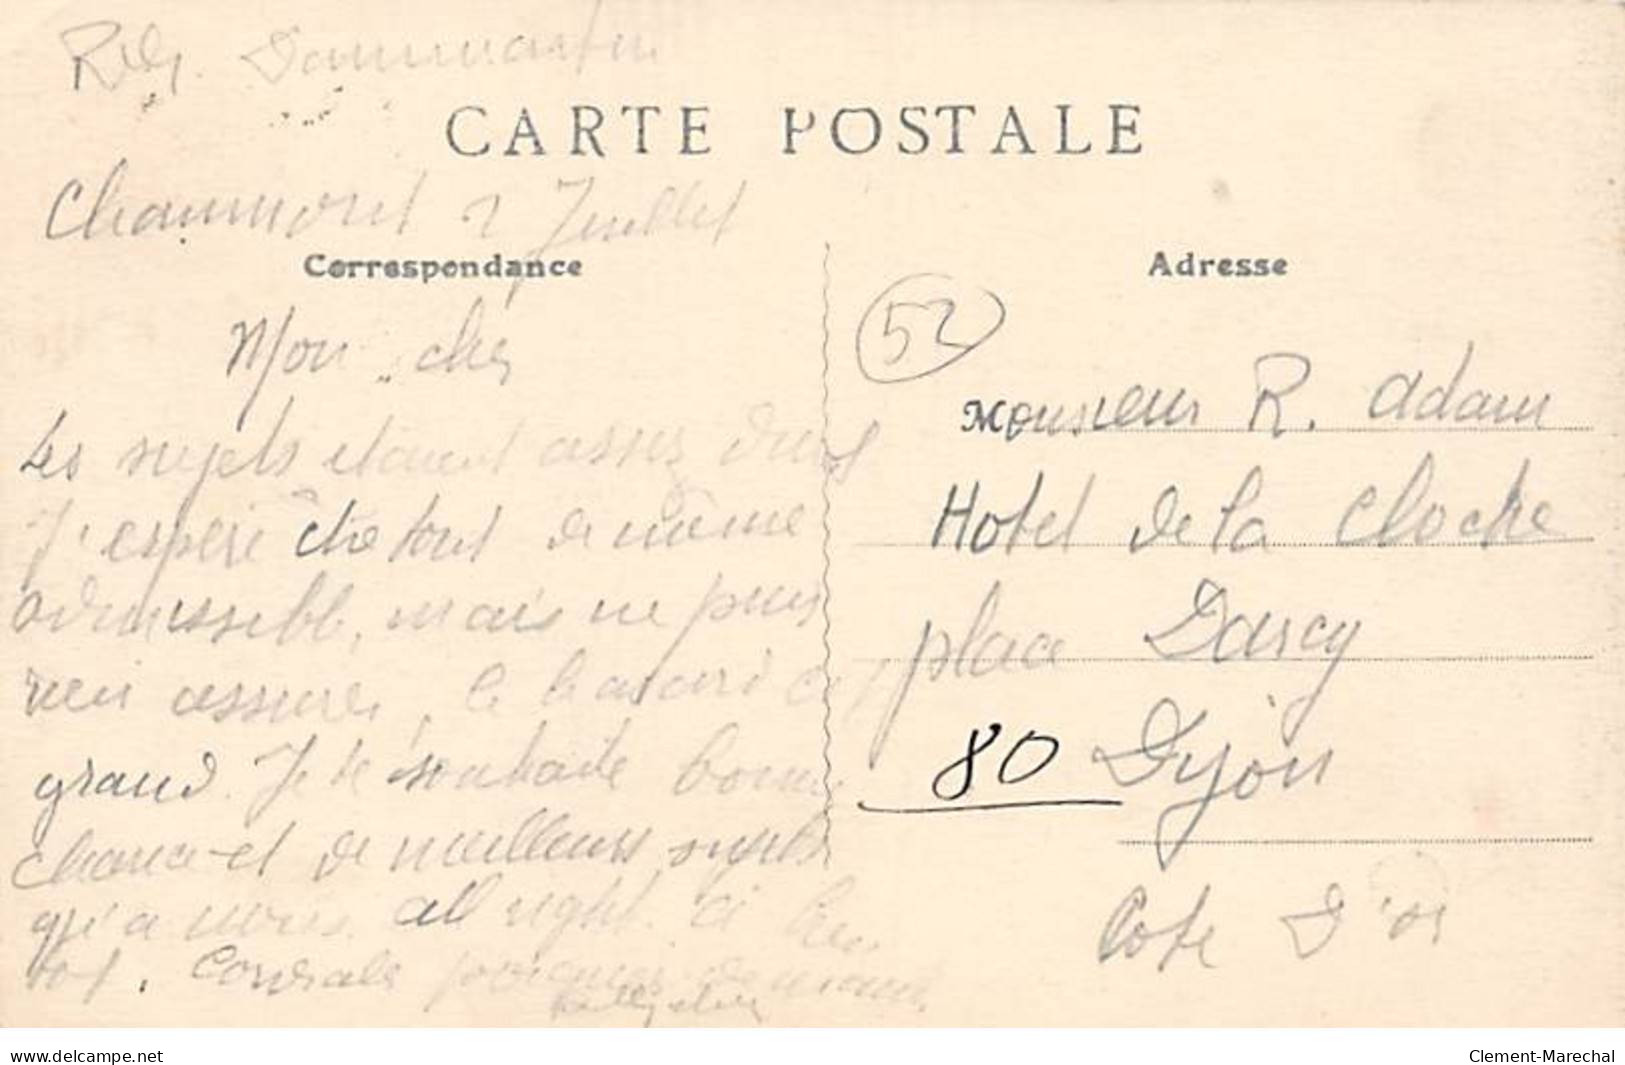 Dammartin
CARTE POSTALE
Chaumont 2 Juillet
Correspondance
Mon cher
Les sujets étaient assez durs
J'espère être tout de même
admissible, mais ne puis
rien assurer, le hasard est
grand. Je te souhaite bonne
chance et de meilleurs sujets
qu'a nous. all right. à bien
tot. Cordiale poignée de main
Adresse
52
Monsieur R. Adam
Hotel de la Cloche
place Darcy
80 Dijon
Cote d'or
www.delcampe.net
Clement-Marechal